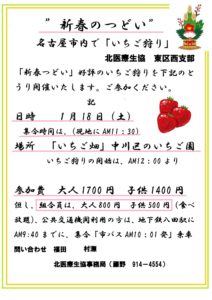 ”新春のつどい”
名古屋市内で「いちご狩り」
北医療生協 東区西支部
「新春つどい」好評のいちご狩りを下記のと
うり開催いたします。ご参加ください。
記
日時 1月18日(土)
集合時間は、(現地にAM11:30)
場所 「いちご畑」中川区のいちご園
いちご狩りの開始は、AM12:00より
参加費 大人1700円 子供1400円
但し、組合員は、大人800円 子供500円(食べ
放題)、公共交通機関利用の方は、地下鉄八田駅に
AM9:40までに、集合「市バスAM10:01発」乗車
問い合わせ 福田 村瀬
北医療生協事務局(藤野 914-4554)